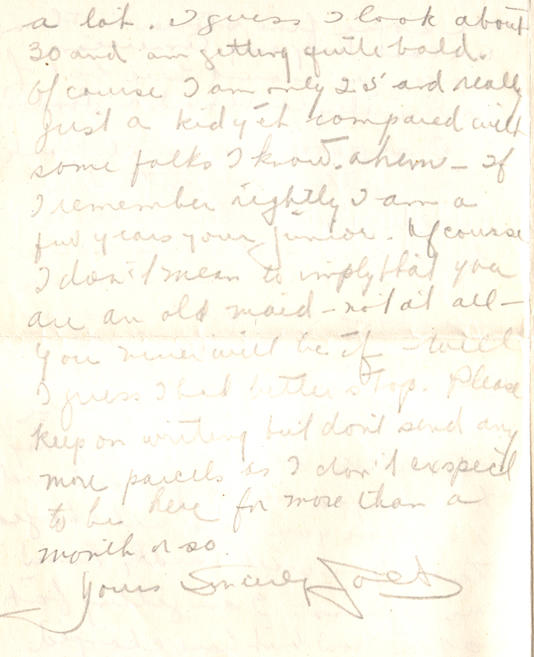 a lot. I guess I look about
30 and am getting quite bald.
Of course I am only 25 and really
just a kid yet compared with
some folks I know. ahem - if
I remember rightly I am a
few years your junior. Of course
I don't mean to imply that you
are an old maid - not at all -
you never will be if - well
I guess I had better stop. Please
keep on writing but don't send any
more parcels as I don't exspect
to be here for more than a
month or so.
Yours Sincerely